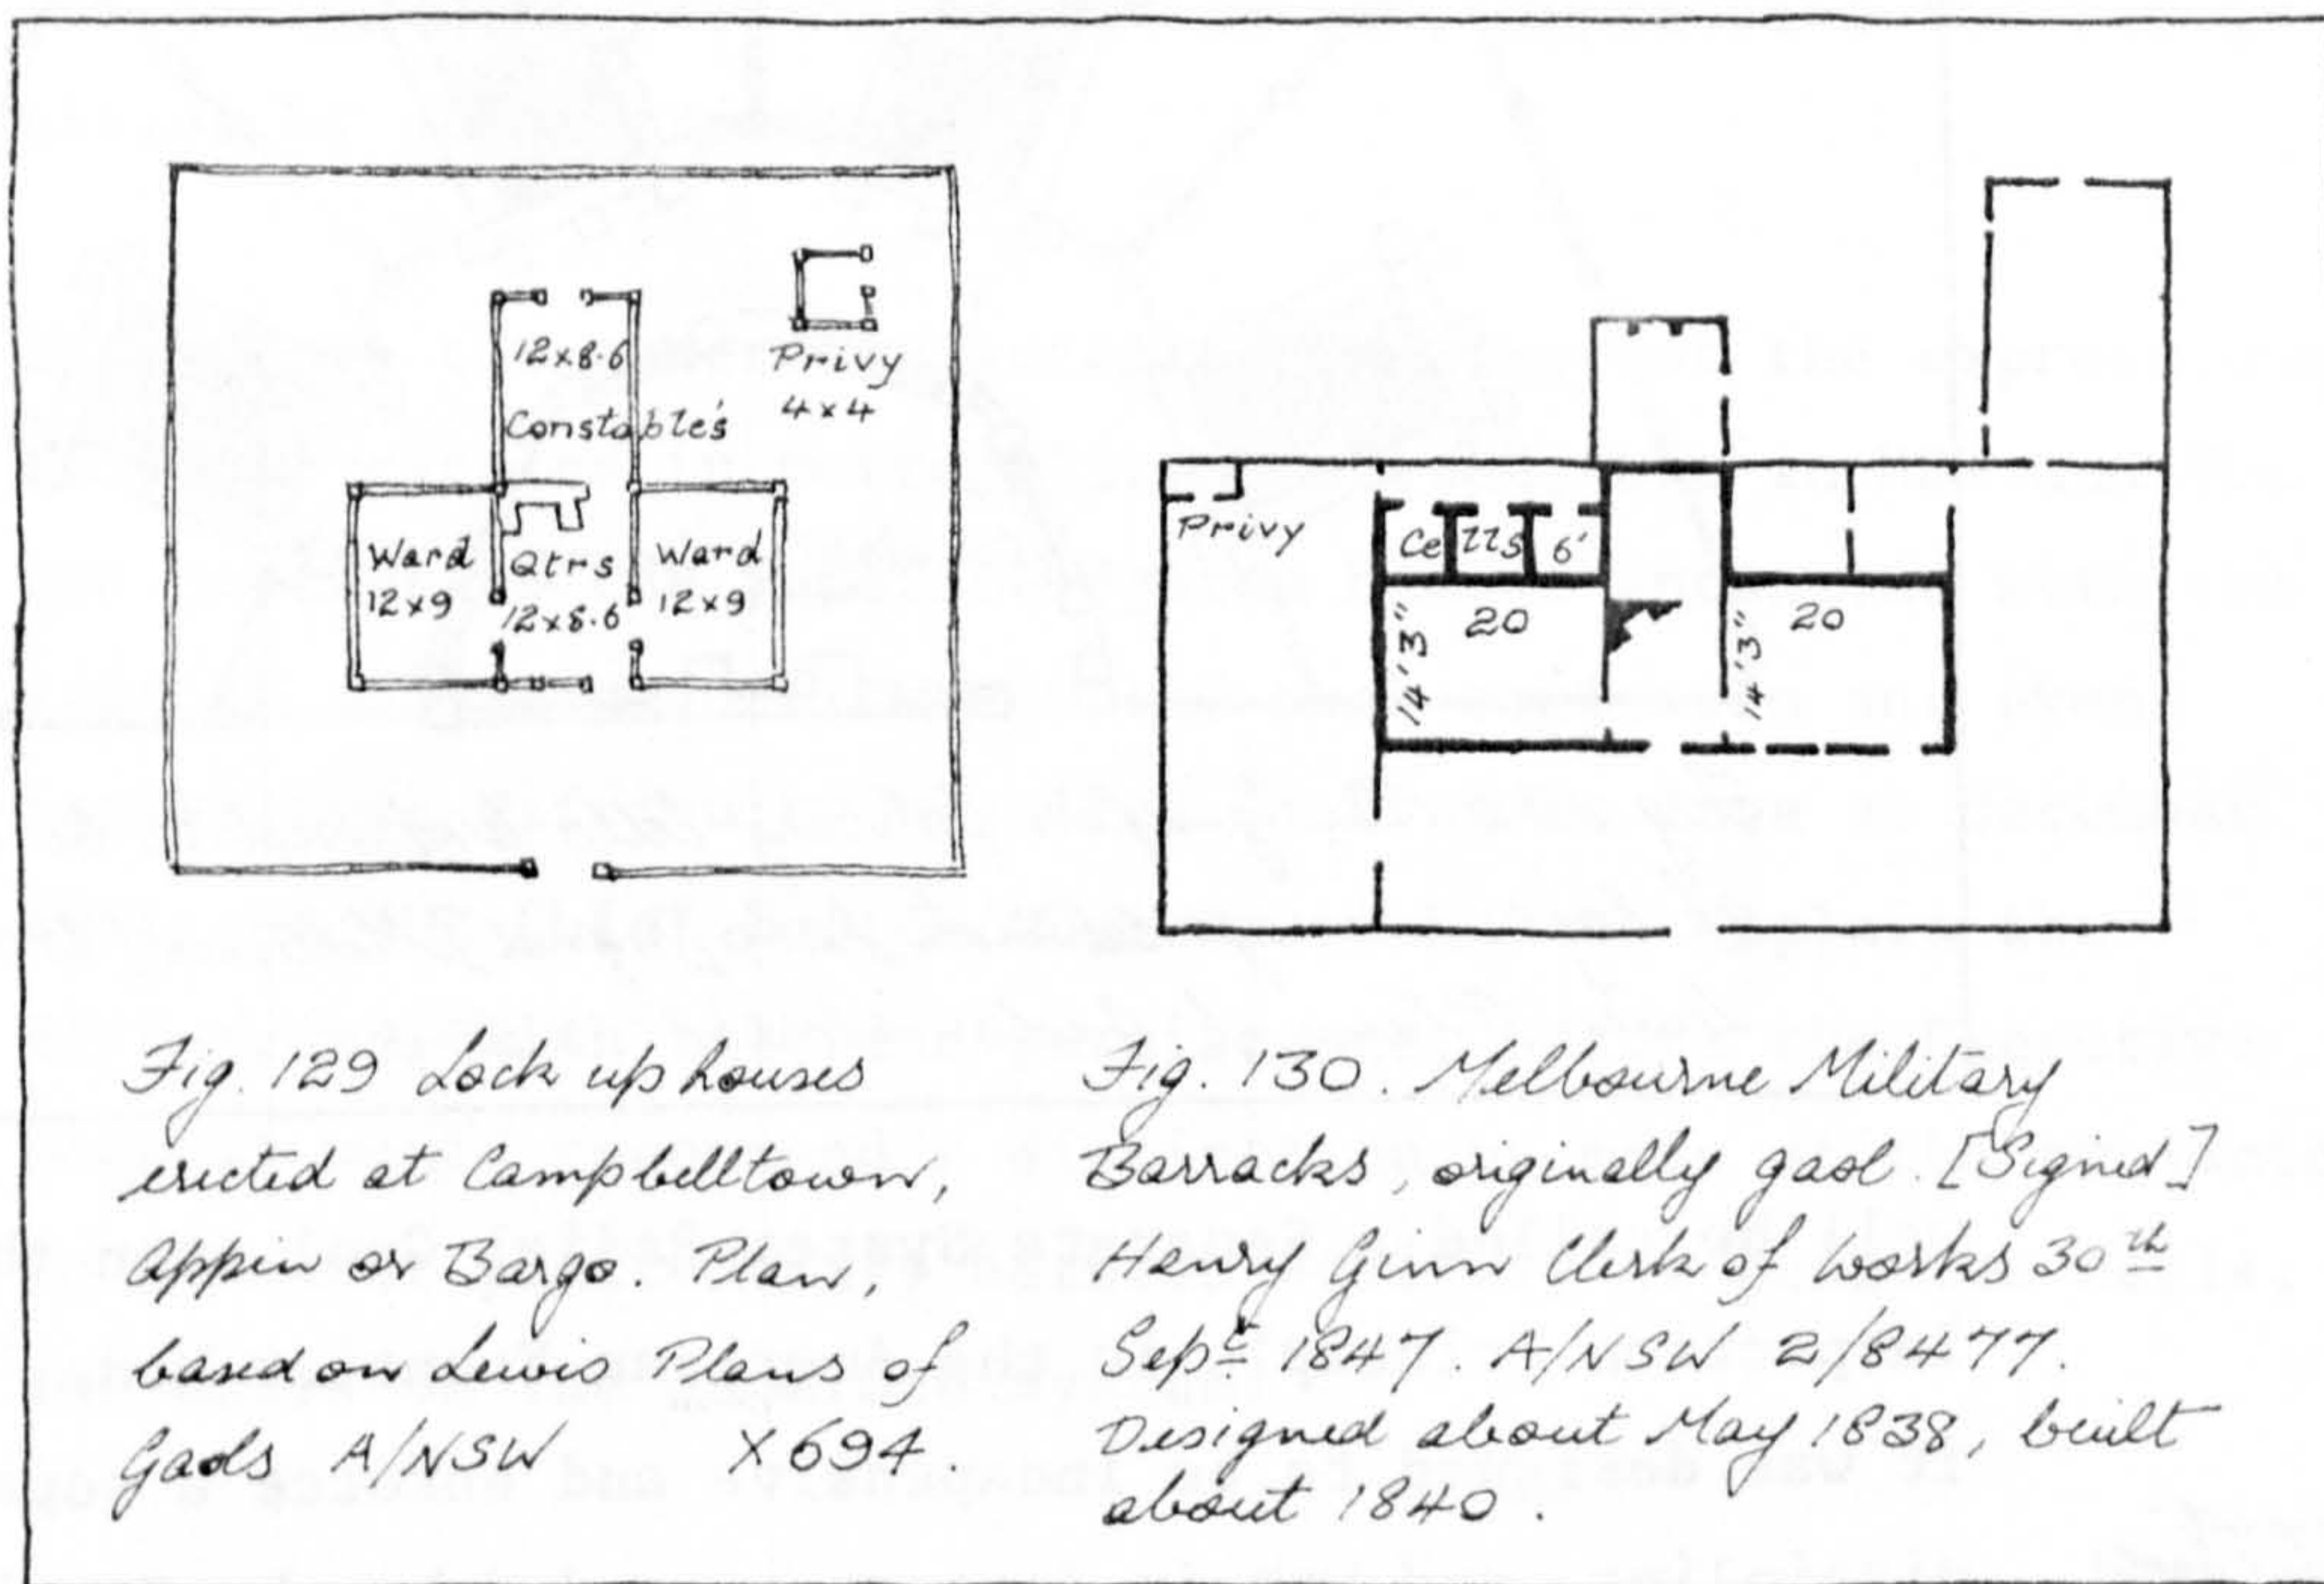 12x8.6
Constable's
Privy
4x4
Ward
12x9
Qtrs
12x8.6
Ward
12x9
Privy
Cells 6'
14'3"
20
14'3"
20
Fig. 129 Lock up houses
erected at Campbelltown,
Appin or Bargo. Plan,
based on Lewis Plans of
Gaols A/NSW X694.
Fig. 130. Melbourne Military
Barracks, originally gaol. [Signed]
Henry Ginn Clerk of Works 30th
Sept 1847. A/NSW 2/8477.
Designed about May 1838, built
about 1840.